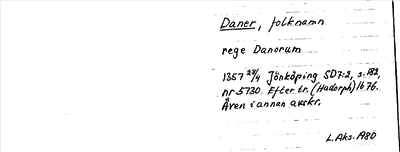 Daner, folknamn
rege Danorum
1357 23/4 Jönköping SD7:2, s. 182,
nr 5730. Efter tr. (Hadorph) 1676.
Även i annan avskr.
L. Aks. 1980